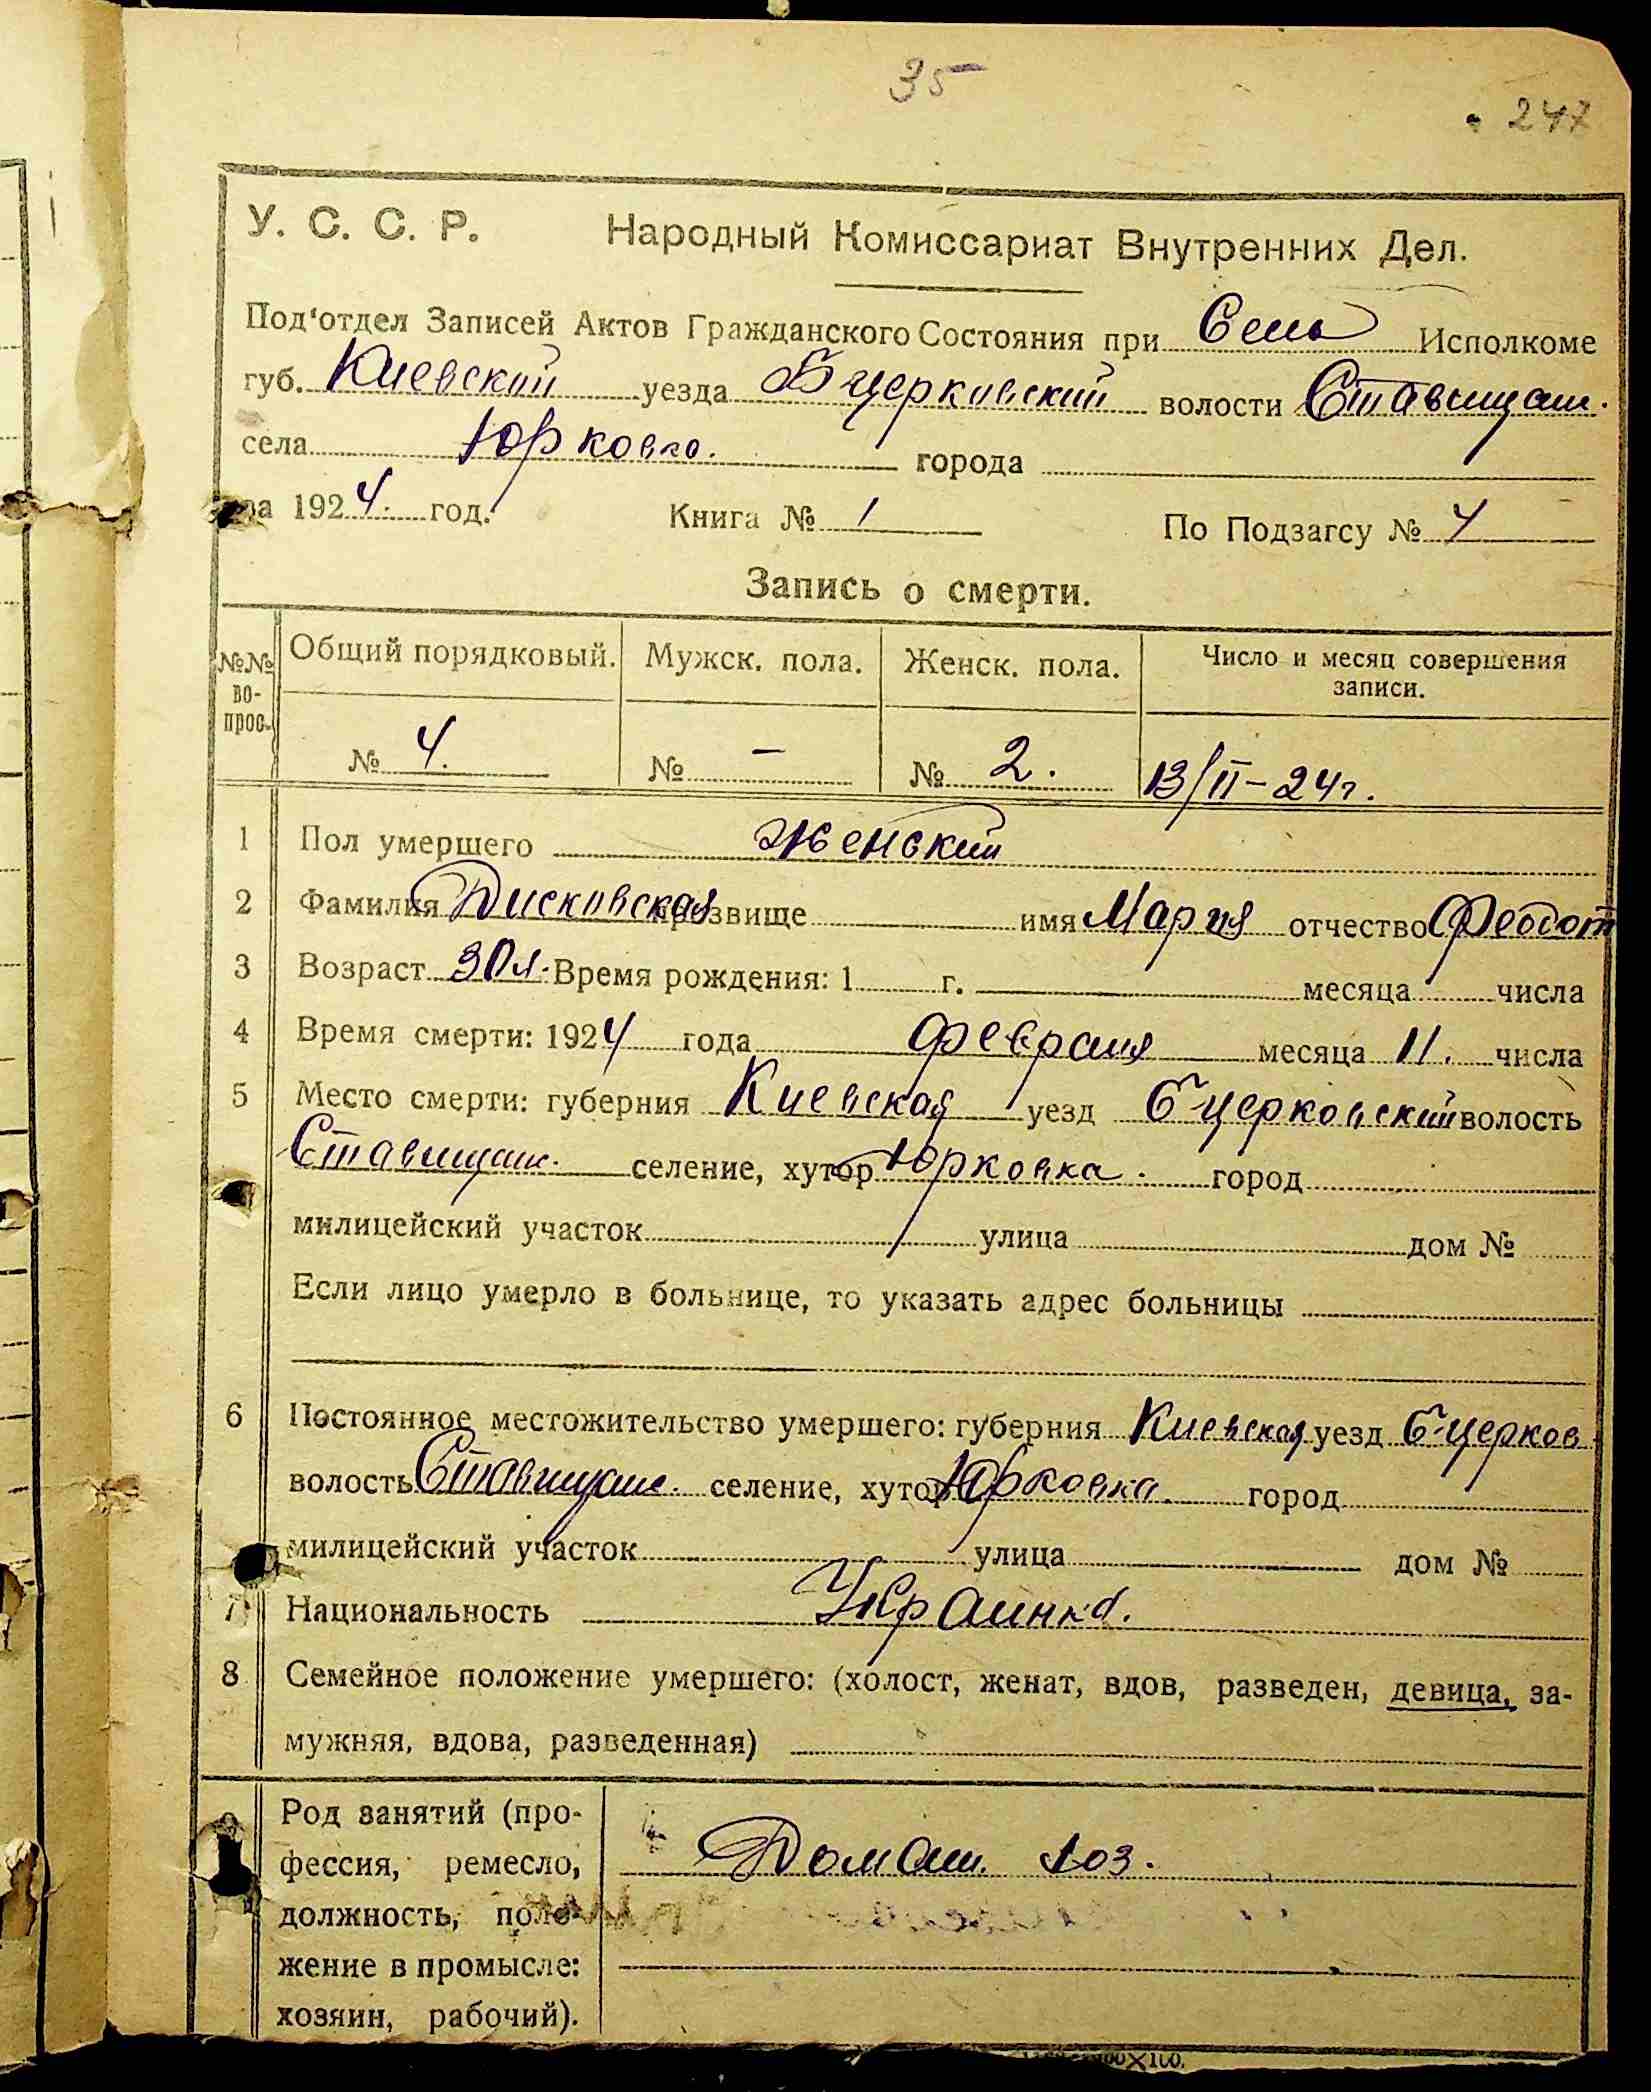 35
247
У. С. С. Р. Народный Комиссариат Внутренних Дел.
Под'отдел Записей Актов Гражданского Состояния при Сель Исполкоме
губ. Киевский уезда Бцерковский волости Ставищан.
села Юрковка. города
на 1924. год. Книга № 1 По Подзагсу № 4
Запись о смерти.
№№ во-прос. Общий порядковый. Мужск. пола. Женск. пола. Число и месяц совершения записи.
№ 4. № – № 2. 13/II–24г.
1 Пол умершего женский
2 Фамилия Дисковская прозвище имя Мария отчество Феодот
3 Возраст 30л. Время рождения: 1 г. месяца числа
4 Время смерти: 1924 года февраля месяца 11. числа
5 Место смерти: губерния Киевская уезд Б-церковский волость
Ставищан. селение, хутор Юрковка. город
милицейский участок улица дом №
Если лицо умерло в больнице, то указать адрес больницы
6 Постоянное местожительство умершего: губерния Киевская уезд Б-церков
волость Ставищан. селение, хутор Юрковка. город
милицейский участок улица дом №
7 Национальность Украинка.
8 Семейное положение умершего: (холост, женат, вдов, разведен, девица, за-
мужняя, вдова, разведенная)
Род занятий (про-
фессия, ремесло, Домаш. хоз.
должность, поло-
жение в промысле:
хозяин, рабочий).